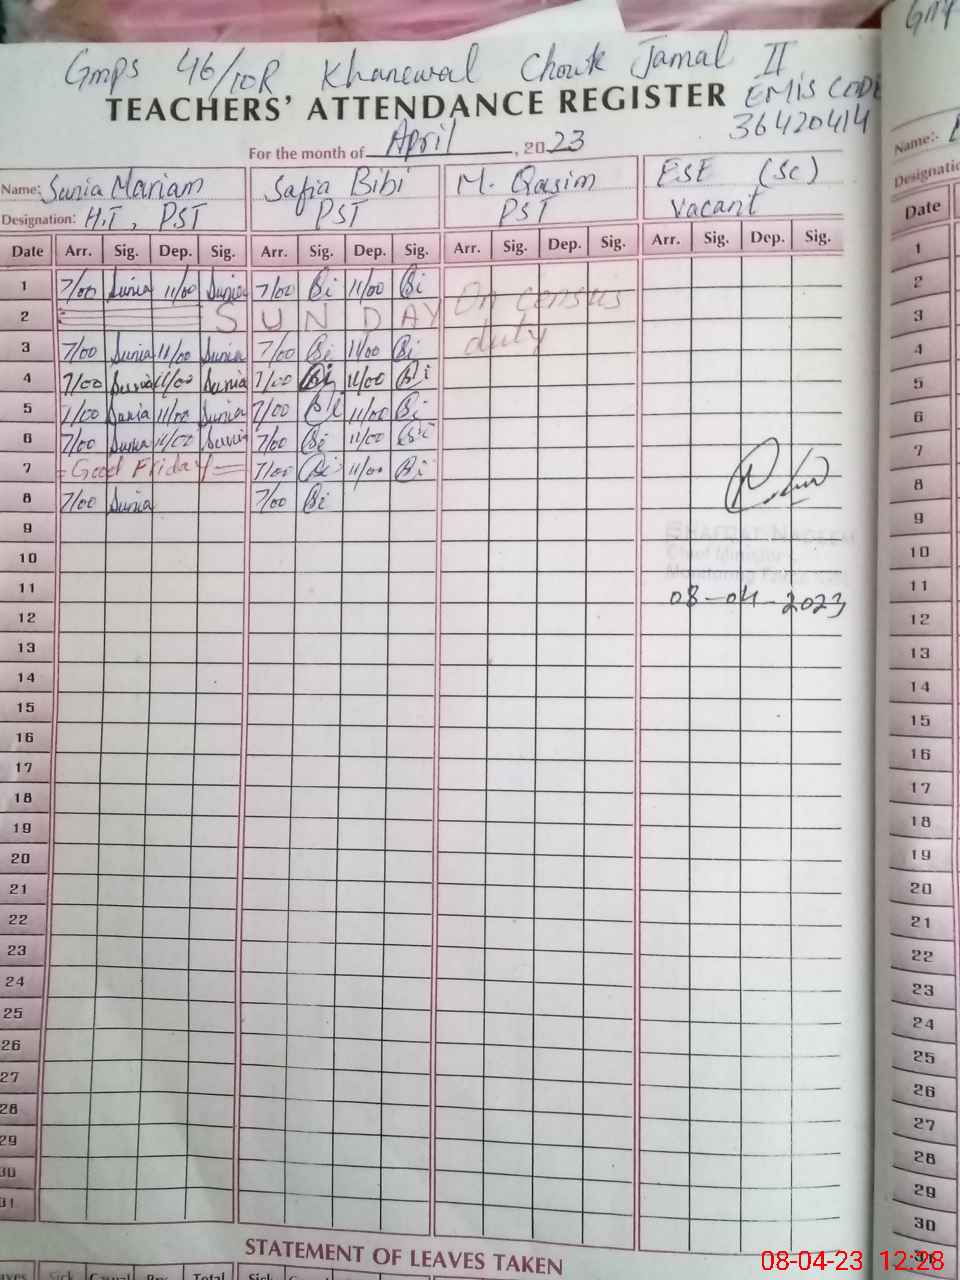 Gmps 46/10R Khanewal Chowk Jamal II
TEACHERS' ATTENDANCE REGISTER EMIS CODE
36420414
For the month of April, 2023
Name: Sunia Mariam Safia Bibi M. Qasim ESE (Sc)
Designation: H.T, PST PST PST Vacant
Date Arr. Sig. Dep. Sig. Arr. Sig. Dep. Sig. Arr. Sig. Dep. Sig. Arr. Sig. Dep. Sig.
1 7/00 Sunia 11/00 Sunia 7/00 Bi 11/00 Bi On census
2 SUNDAY
3 7/00 Sunia 11/00 Sunia 7/00 Bi 11/00 Bi duty
4 7/00 Sunia 11/00 Sunia 7/00 Bi 11/00 Bi
5 7/00 Sunia 11/00 Sunia 7/00 Bi 11/00 Bi
6 7/00 Sunia 11/00 Sunia 7/00 Bi 11/00 Bi
7 Good Friday 7/00 Bi 11/00 Bi
8 7/00 Sunia 7/00 Bi
9
10 Chief Minister
11 Monitoring
08-04-2023
12
13
14
15
16
17
18
19
20
21
22
23
24
25
26
27
28
29
30
31
STATEMENT OF LEAVES TAKEN
Sick Casual Total Sick
Name:
Designatio
Date
1
2
3
4
5
6
7
8
9
10
11
12
13
14
15
16
17
18
19
20
21
22
23
24
25
26
27
28
29
30
31
08-04-23 12:28